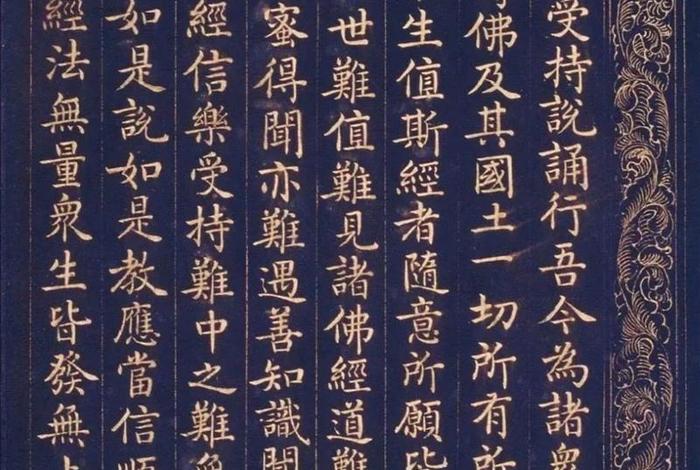 受持説誦行吾今為諸衆
佛及其國土一切所有所
生值斯經者隨意所願皆
世難值難見諸佛經道難
蜜得聞亦難遇善知識聞
經信樂受持難中之難無
如是說如是教應當信順
經法無量衆生皆發無上